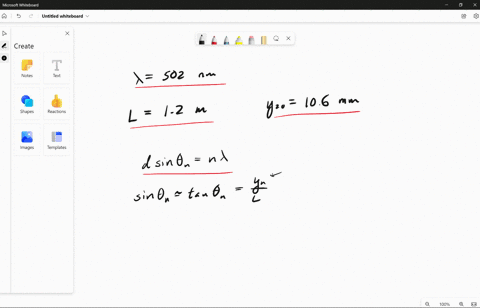 Microsoft Whiteboard
Untitled whiteboard
Create
Notes
Text
Shapes
Reactions
Images
Templates
λ = 502 nm
L = 1.2 m
y₂₀ = 10.6 mm
d sinθₙ = nλ
sinθₙ ≃ tanθₙ = yₙ/L
100%